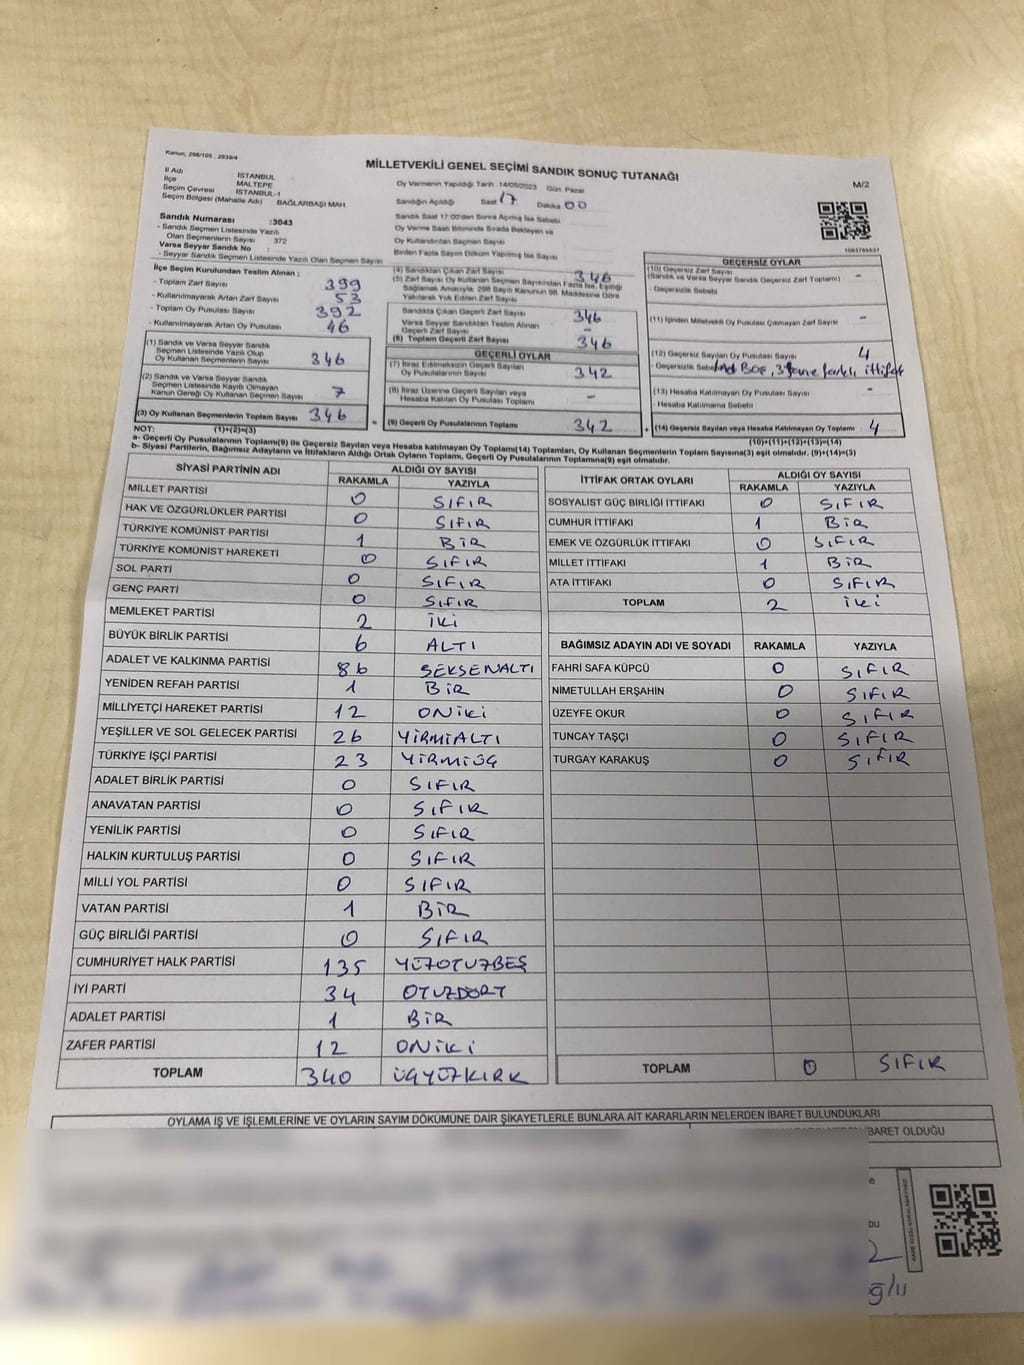 Kanun, 298/105 ; 2839/4
MİLLETVEKİLİ GENEL SEÇİMİ SANDIK SONUÇ TUTANAĞI
M/2
İl Adı İSTANBUL
İlçe MALTEPE
Seçim Çevresi İSTANBUL-1
Seçim Bölgesi (Mahalle Adı) BAĞLARBAŞI MAH.
Oy Vermenin Yapıldığı Tarih :14/05/2023 Gün: Pazar
Sandığın Açıldığı Saat 17 Dakika 00
Sandık Numarası :3043
- Sandık Seçmen Listesinde Yazılı
Olan Seçmenlerin Sayısı 372
Varsa Seyyar Sandık No :
- Seyyar Sandık Seçmen Listesinde Yazılı Olan Seçmen Sayısı
Sandık Saat 17:00'den Sonra Açılmış İse Sebebi
Oy Verme Saati Bitiminde Sırada Bekleyen ve
Oy Kullandırılan Seçmen Sayısı
Birden Fazla Sayım Döküm Yapılmış İse Sayısı
İlçe Seçim Kurulundan Teslim Alınan ;
- Toplam Zarf Sayısı 399
- Kullanılmayarak Artan Zarf Sayısı 53
- Toplam Oy Pusulası Sayısı 392
- Kullanılmayarak Artan Oy Pusulası 46
(1) Sandık ve Varsa Seyyar Sandık
Seçmen Listesinde Yazılı Olup
Oy Kullanan Seçmenlerin Sayısı 346
(2) Sandık ve Varsa Seyyar Sandık
Seçmen Listesinde Kayıtlı Olmayan
Kanun Gereği Oy Kullanan Seçmen Sayısı 7
(3) Oy Kullanan Seçmenlerin Toplam Sayısı 346
(1)+(2)=(3)
(4) Sandıktan Çıkan Zarf Sayısı 346
(5) Zarf Sayısı Oy Kullanan Seçmen Sayısından Fazla İse, Eşitliği
Sağlamak Amacıyla, 298 Sayılı Kanunun 98. Maddesine Göre
Yakılarak Yok Edilen Zarf Sayısı
Sandıkta Çıkan Geçerli Zarf Sayısı 346
Varsa Seyyar Sandıktan Teslim Alınan
Geçerli Zarf Sayısı -
(6) Toplam Geçerli Zarf Sayısı 346
GEÇERLİ OYLAR
(7) İtiraz Edilmeksizin Geçerli Sayılan
Oy Pusulalarının Sayısı 342
(8) İtiraz Üzerine Geçerli Sayılan veya
Hesaba Katılan Oy Pusulası Toplamı -
= (9) Geçerli Oy Pusulalarının Toplamı 342
GEÇERSİZ OYLAR
(10) Geçersiz Zarf Sayısı
(Sandık ve Varsa Seyyar Sandık Geçersiz Zarf Toplamı) -
- Geçersizlik Sebebi
(11) İçinden Milletvekili Oy Pusulası Çıkmayan Zarf Sayısı -
(12) Geçersiz Sayılan Oy Pusulası Sayısı 4
- Geçersizlik Boş, 3 tane farklı ittifak
(13) Hesaba Katılmayan Oy Pusulası Sayısı -
- Hesaba Katılmama Sebebi
+ (14) Geçersiz Sayılan veya Hesaba Katılmayan Oy Toplamı 4
(10)+(11)+(12)+(13)=(14)
NOT:
a- Geçerli Oy Pusulalarının Toplamı(9) ile Geçersiz Sayılan veya Hesaba katılmayan Oy Toplamı(14) Toplamları, Oy Kullanan Seçmenlerin Toplam Sayısına(3) eşit olmalıdır. (9)+(14)=(3)
b- Siyasi Partilerin, Bağımsız Adayların ve İttifakların Aldığı Ortak Oyların Toplamı, Geçerli Oy Pusulalarının Toplamına(9) eşit olmalıdır.
SİYASİ PARTİNİN ADI ALDIĞI OY SAYISI
RAKAMLA YAZIYLA
MİLLET PARTİSİ 0 SIFIR
HAK VE ÖZGÜRLÜKLER PARTİSİ 0 SIFIR
TÜRKİYE KOMÜNİST PARTİSİ 1 BİR
TÜRKİYE KOMÜNİST HAREKETİ 0 SIFIR
SOL PARTİ 0 SIFIR
GENÇ PARTİ 0 SIFIR
MEMLEKET PARTİSİ 2 İKİ
BÜYÜK BİRLİK PARTİSİ 6 ALTI
ADALET VE KALKINMA PARTİSİ 86 SEKSENALTI
YENİDEN REFAH PARTİSİ 1 BİR
MİLLİYETÇİ HAREKET PARTİSİ 12 ONİKİ
YEŞİLLER VE SOL GELECEK PARTİSİ 26 YİRMİALTI
TÜRKİYE İŞÇİ PARTİSİ 23 YİRMİÜÇ
ADALET BİRLİK PARTİSİ 0 SIFIR
ANAVATAN PARTİSİ 0 SIFIR
YENİLİK PARTİSİ 0 SIFIR
HALKIN KURTULUŞ PARTİSİ 0 SIFIR
MİLLİ YOL PARTİSİ 0 SIFIR
VATAN PARTİSİ 1 BİR
GÜÇ BİRLİĞİ PARTİSİ 0 SIFIR
CUMHURİYET HALK PARTİSİ 135 YÜZOTUZBEŞ
İYİ PARTİ 34 OTUZDÖRT
ADALET PARTİSİ 1 BİR
ZAFER PARTİSİ 12 ONİKİ
TOPLAM 340 ÜÇYÜZKIRK
İTTİFAK ORTAK OYLARI ALDIĞI OY SAYISI
RAKAMLA YAZIYLA
SOSYALİST GÜÇ BİRLİĞİ İTTİFAKI 0 SIFIR
CUMHUR İTTİFAKI 1 BİR
EMEK VE ÖZGÜRLÜK İTTİFAKI 0 SIFIR
MİLLET İTTİFAKI 1 BİR
ATA İTTİFAKI 0 SIFIR
TOPLAM 2 İKİ
BAĞIMSIZ ADAYIN ADI VE SOYADI RAKAMLA YAZIYLA
FAHRİ SAFA KÜPCÜ 0 SIFIR
NİMETULLAH ERŞAHİN 0 SIFIR
ÜZEYFE OKUR 0 SIFIR
TUNCAY TAŞÇI 0 SIFIR
TURGAY KARAKUŞ 0 SIFIR
TOPLAM 0 SIFIR
OYLAMA İŞ VE İŞLEMLERİNE VE OYLARIN SAYIM DÖKÜMÜNE DAİR ŞİKAYETLERLE BUNLARA AİT KARARLARIN NELERDEN İBARET BULUNDUKLARI
İBARET OLDUĞU
KARE KODU KARALAMAYINIZ